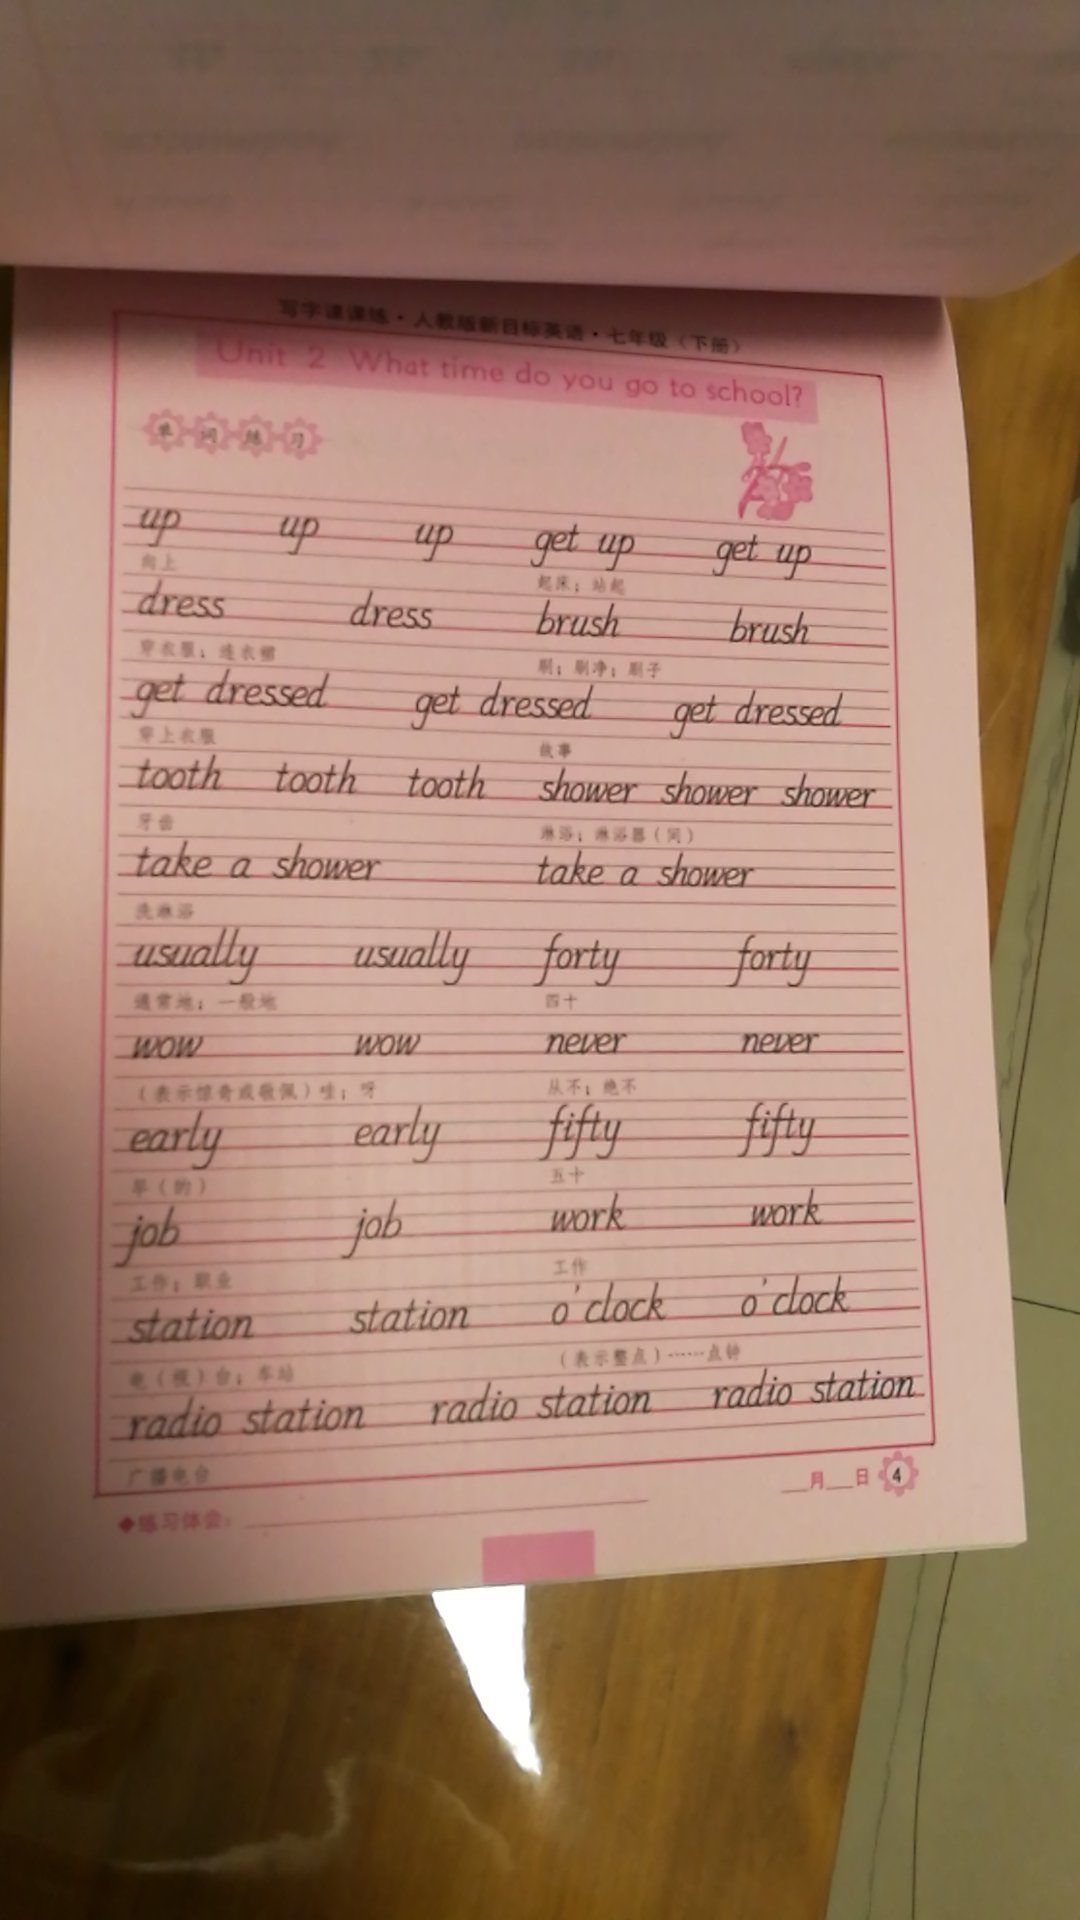 写字课课练·人教版新目标英语·七年级(下册)
Unit 2 What time do you go to school?
单词练习
up up up get up get up
向上 起床;站起
dress dress brush brush
穿衣服;连衣裙 刷;刷净;刷子
get dressed get dressed get dressed
穿上衣服 故事
tooth tooth tooth shower shower shower
牙齿 淋浴;淋浴器(间)
take a shower take a shower
洗淋浴
usually usually forty forty
通常地;一般地 四十
wow wow never never
(表示惊奇或敬佩)哇;呀 从不;绝不
early early fifty fifty
早(的) 五十
job job work work
工作;职业 工作
station station o'clock o'clock
电(视)台;车站 (表示整点)……点钟
radio station radio station radio station
广播电台
__月__日 4
◆练习体会: